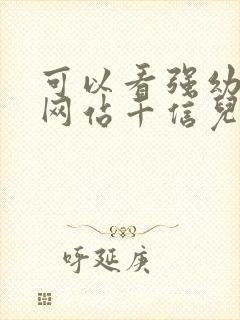 可以看强幼
网佔十信
呼延庚